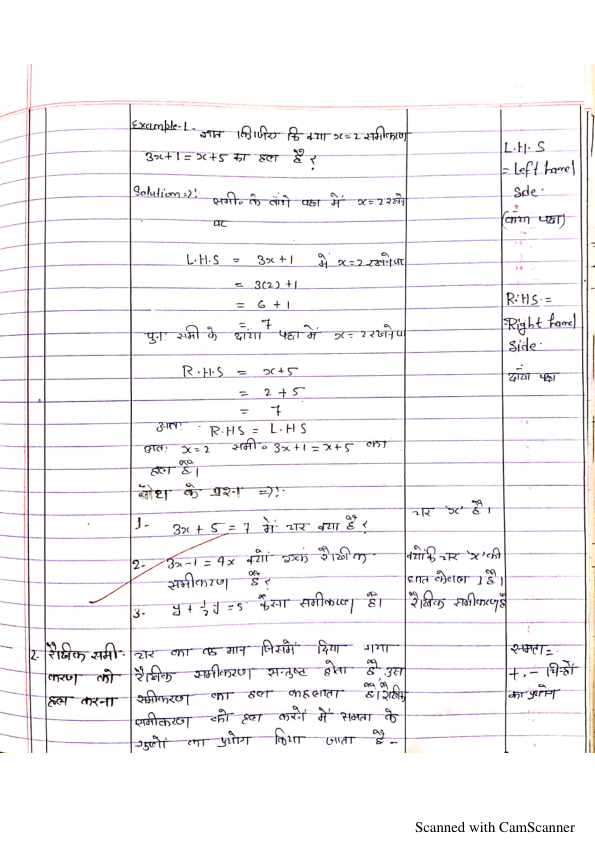 Example-1. ज्ञात कीजिए कि क्या x=2 समीकरण
3x+1 = x+5 का हल है ?
Solution=>: समी० के बांये पक्ष में x=2 रखने
पर
L.H.S = 3x+1 में x=2 रखने पर
= 3(2)+1
= 6 + 1
= 7
पुनः समी के दांया पक्ष में x=2 रखने पर
R.H.S = x+5
= 2 + 5
= 7
अतः R.HS = L.HS
अतः x=2 समी० 3x+1=x+5 का
हल है।
बोध के प्रश्न =>:-
1- 3x + 5 = 7 में चर क्या है ?
2- 3x-1 = 4x क्यों रैखिक
समीकरण है ?
3- y + 1/2 y = 5 कैसा समीकरण है।
L.H.S
= Left hand
Side.
(बांया पक्ष)
R.HS.=
Right hand
Side.
दांया पक्ष
चर 'x' है।
क्योंकि चर 'x' की
घात केवल 1 है।
रैखिक समीकरण है
2. रैखिक समी-
करण को
हल करना
चर का वह मान जिसमें दिया गया
रैखिक समीकरण सन्तुष्ट होता है, उस
समीकरण का हल कहलाता है। रैखिक
समीकरण को हल करने में समता के
गुणों का प्रयोग किया जाता है -
समता=
+, - चिन्हों
का प्रयोग
Scanned with CamScanner